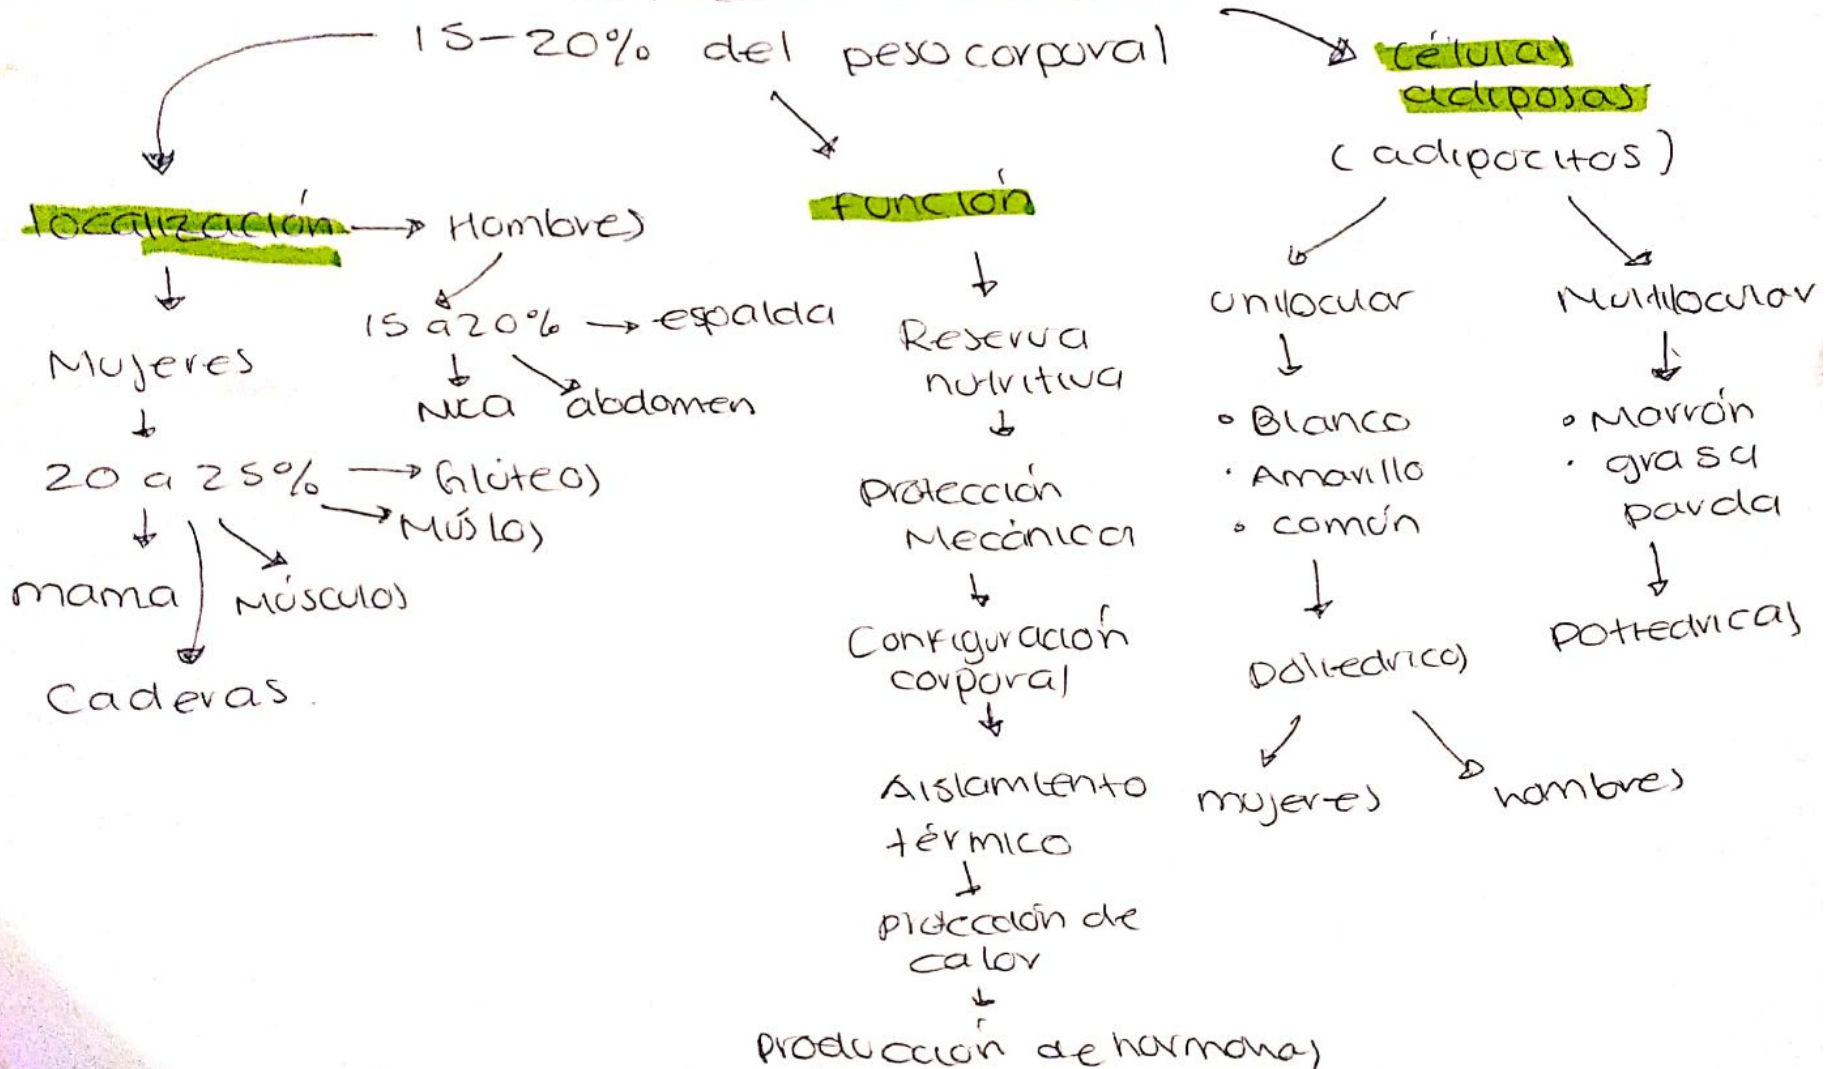 15-20% del peso corporal
células
adiposas
(adipocitos)
localización
Hombres
15 a 20%
espalda
abdomen
Mujeres
20 a 25%
Glúteos
Múslos
mama
Músculos
Caderas.
función
Reserva
nutritiva
Protección
Mecánica
Configuración
corporal
Aislamiento
térmico
calor
producción de hormonas
unilocular
• Blanco
• Amarillo
• común
mujeres
hombres
Multilocular
• Marrón
• grasa
parda